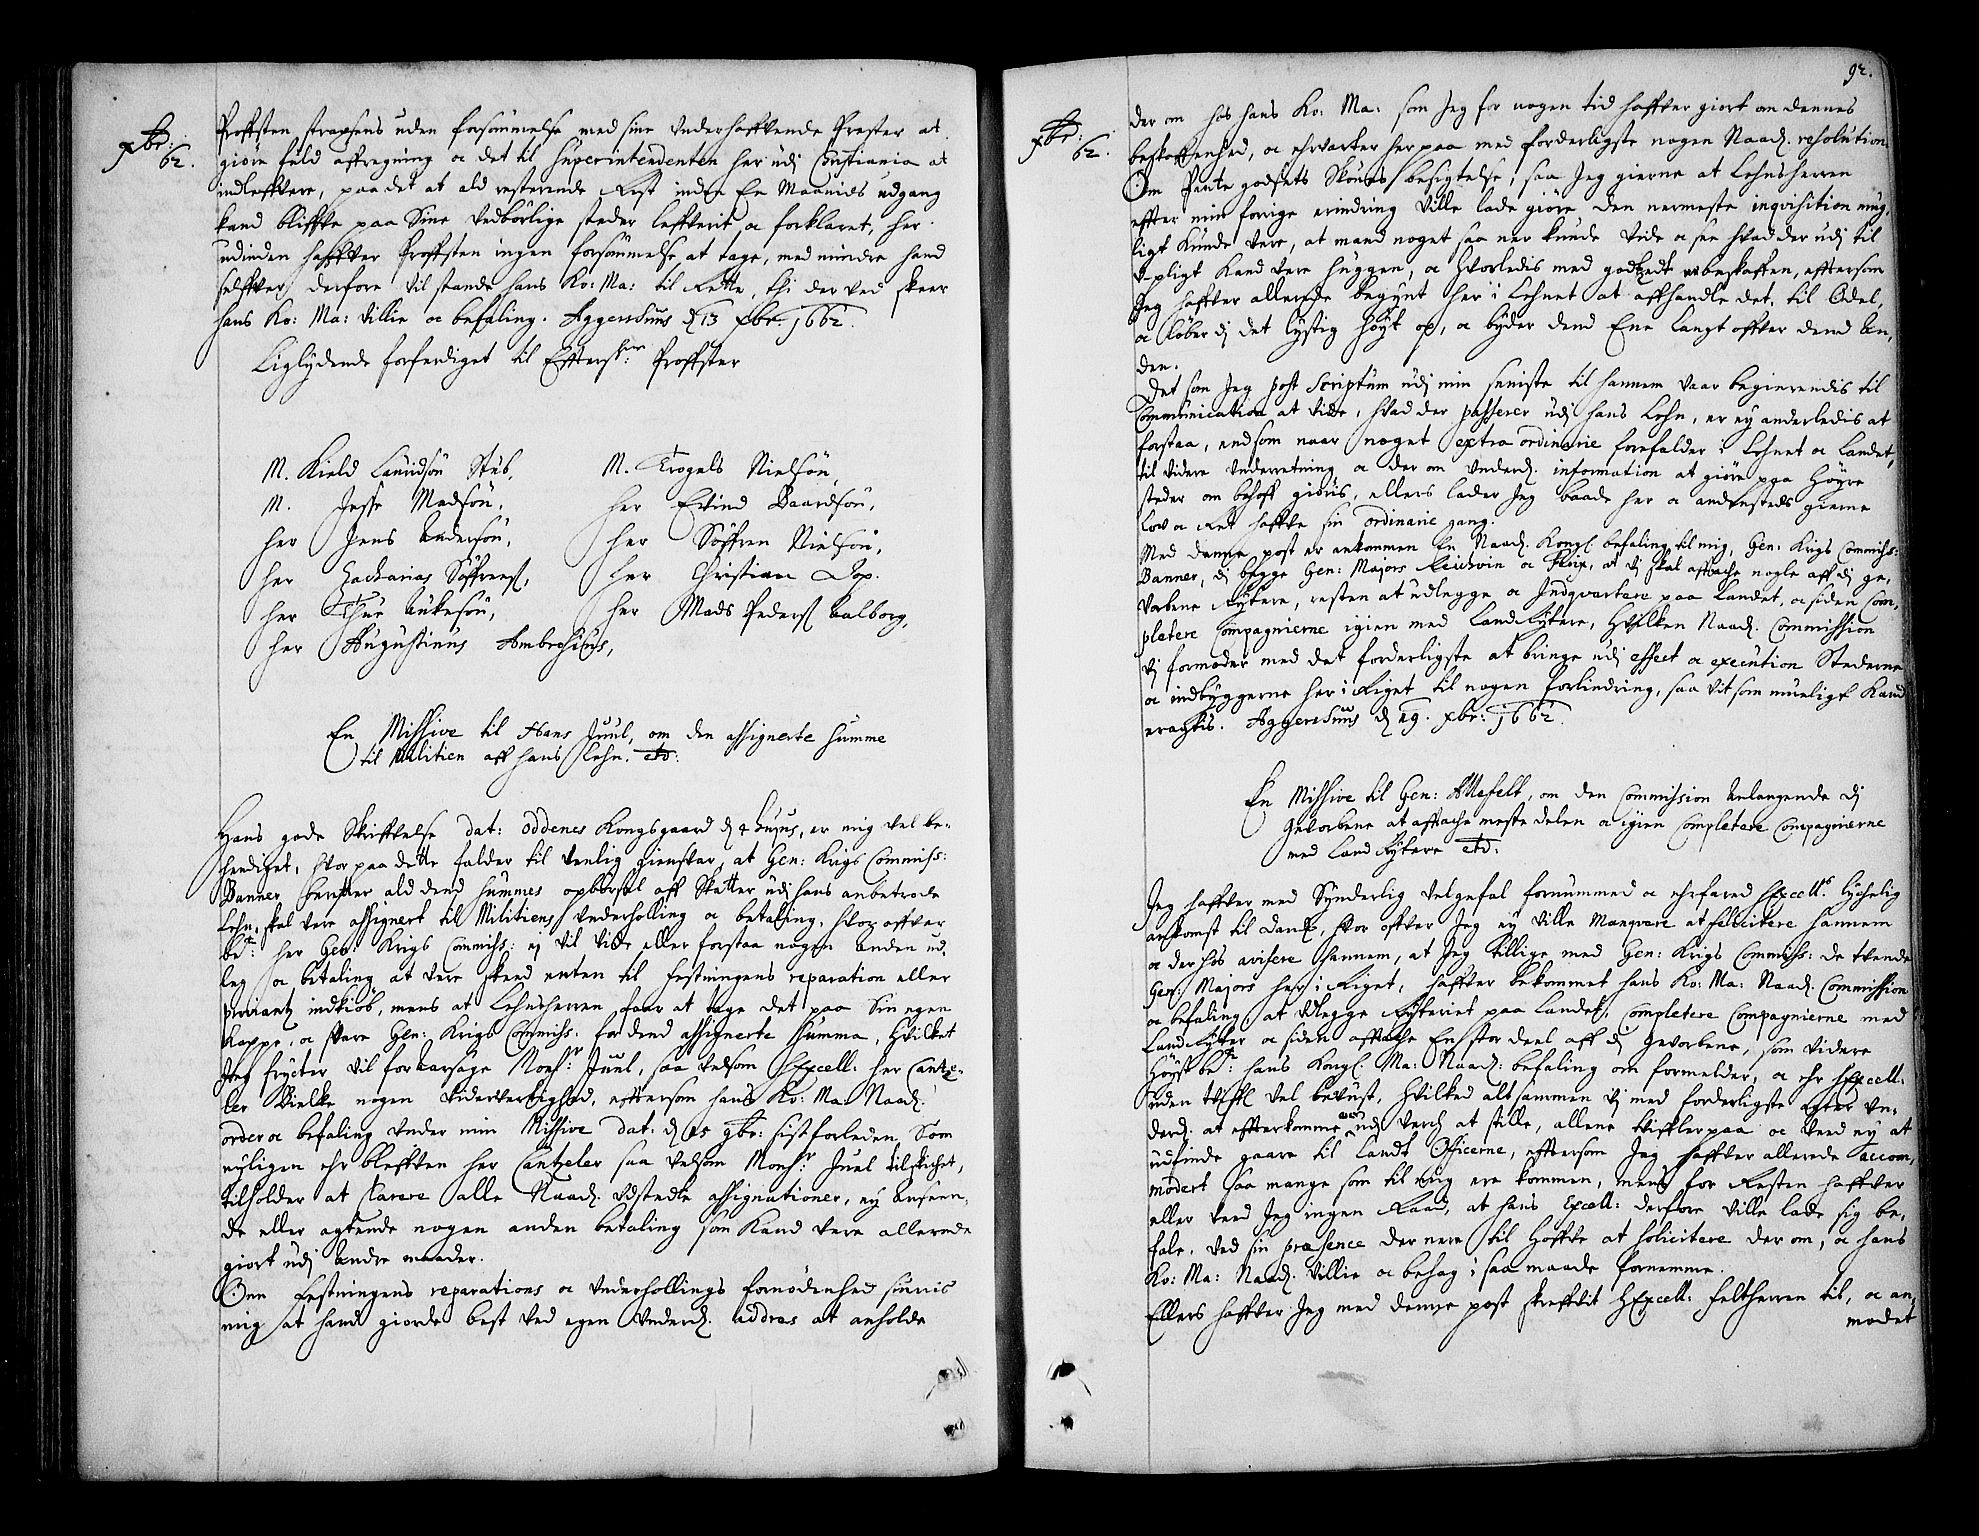 xbr:
62.
Proffsten strapsens uden forsømmelse med sine underhaffvende Prester at
giøre fuld affregning oc det til Superintendenten her udj Christiania at
indleffvere, paa det at ald resterende Rest inden En Maanids udgang
kand bliffve paa Sine vedbørlige steder lefferit oc forklaret, her
udinden haffver Proffsten ingen forsømmelse at tage, med mindre hand
selffver derfore vil stande hans Ko: Ma: til Rette, thi der ved skeer
hans Ko: Ma: Villie oc befaling. Aggershuus d 13 xbr. 1662.
Liglydende forferdiget til Effterskne: Proffster
M. Kield Lauridsøn Stub,
M. Jesse Madsøn,
her Jens Andersøn,
her Zacharias Søffrens,
her Thue Aukesøn,
her Augustinus Ambrosius,
M. Trogels Nielsøn,
her Eivind Baardsøn,
her Søffren Nielsøn,
her Christian Dop.
her Mads Peders Aalborg,
En Missive til Hans Juul, om den assignerte Summe
til Militien aff hans Lehn. etc:
Hans gode Skriffvelse dat: Oddenes Kongsgaard d 4 hujus, er mig vel be-
hendiget, hvor paa dette falder til venlig giensvar, at Gen: Krigs Commiss:
Banner beretter ald dend Summes opbørsel aff Skatter udj hans anbetrode
Lehn, skal vere assignert til Militiens Underholling oc betaling, hvor offver
bte: her Gen: Krigs Commiss: ej vil vide eller forstaa nogen anden ud-
leg oc betaling at vere skeed enten til Festningens reparation eller
proviantz indkiøb, mens at Lehnsherren faar at tage det paa Sin egen
Kappe, oc svare Gen: Krigs Commiss: for dend assignerte Summa, hvilket
Jeg frycter vil foraarsage Mons:r Juul, saa velsom hExcell. her Cantze-
ler Bielke nogen Viderverdighed, efftersom hans Ko: Ma: Naad:
order oc befaling under min Missive dat: d 15 9br: sist forleden, Som
nyligen ehr bleffven her Cantzeler saa velsom Mons:r Juel tilskichet,
tilholder at Clarere alle Naad. udstedte assignationer, ey Anseen-
de eller agtende nogen anden betaling som kand vere allerede
giort udj Andre maader.
Om Festningens reparations oc Underhollings fornødenhed siunis
mig at hand giorde best ved egen underd. addres at anholde
92.
xbr:
62.
der om hos hans Ko: Ma: som Jeg for nogen tid haffver giort om dennes
beskaffenhed, oc ehrvarter her paa med forderligste nogen Naad. resolution.
Om Pante godsets Skouns besigtelse, saa Jeg gierne at Lehnsherren
effter min forrige erindring ville lade giøre den nermeste inqvisition mug-
ligt kunde vere, at mand noget saa ner kunde vide oc see hvad der udj til
upligt kand vere huggen, oc hvorledis med godtzedt er beskaffen, efftersom
Jeg haffver allerede begynt her i Lehnet at affhandle det, til Odel,
oc køber dj det lystig høyt op, oc byder dend Ene langt offver dend An-
den.
Det som Jeg post scriptum udj min seniste til hannem vaar begierendis til
Communication at vide, hvad der passerer udj hans Lehn, er ey anderledis at
forstaa, end som naar noget extra ordinarie forefalder i Lehnet oc Landet,
til videre underretning oc der om underd. information at giøre paa høyre
steder om behoff giøris, ellers lader Jeg baade her oc andensteds gierne
Lov oc Ret haffve sin ordinarie gang.
Med denne post er ankommen En Naad. Kongl befaling til mig, Gen: Krigs Commiss:
Banner, dj begge Gen: Majors Reichwin oc , at vj skal afftache nogle aff dj ge-
vorbene Rytere, resten at udlegge oc Indqvartere paa Landet, oc siden Com-
pletere Compagnierne igien med LandRytere, hvilken Naad. Commission
vj formoder med det forderligste at bringe udj effect oc execution Stederne
oc indbyggerne her i Riget til nogen forlindring, saa vit som mueligt kand
eragtis. Aggershuus d 29. xbr: 1662.
En Missive til Gen: Allefelt, om den Commission anlangende dj
Gevorbene at afftache meste delen oc igien Completere Compagnierne
med Land Rytere etc:
Jeg haffver med Synderlig velgefal fornummed oc ehrfared hExcell:s Lychelig
ankomst til Danm, hvor offver Jeg ey ville Manqvere at felicitere hannem
oc der hos avisere hannem, at Jeg tillige med Gen: Krigs Commiss: de tvende
Gen: Majors her i Riget, haffver bekommet hans Ko: Ma: Naad. Commission
oc befaling at Udlegge Ryteriet paa Landet, Completere Compagnierne med
Land Ryter oc siden afftache En stor deel aff dj Gevorbene, som videre
høyst bte: hans Kongl. Ma: Naad: befaling om formelder, oc ehr hExcell:
uden tvifl vel bevust, hvilked alt sammen vj med forderligste agter un-
derd. at effterkomme oc udj verch at stille, allene tviffler paa oc veed ey at
udfinde gaare til Landt Officerne, efftersom Jeg haffver allerede accom-
modert saa mange som til mig ere kommen, mens for Resten haffver
eller veed Jeg ingen Raad, at hans Excell: derfore ville lade sig be-
fale, ved sin præsence der nere til hoffve at solicitere der om, oc hans
Ko: Ma: Naad. Villie oc behag i saa maade fornemme.
Ellers haffver Jeg med denne post skreffvit hExcell: Feltherren til, oc an-
modet